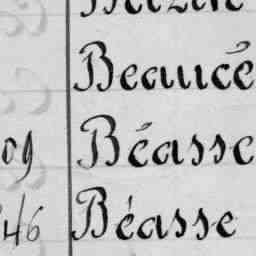 Beaucé
09 Béasse
46 Béasse